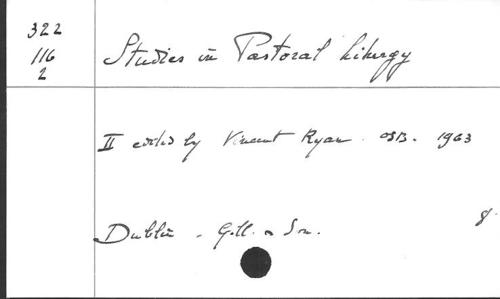 322
116
2
Studies in Pastoral Liturgy
II edited by Vincent Ryan OSB. 1963
Dublin - Gill & Son.
8.